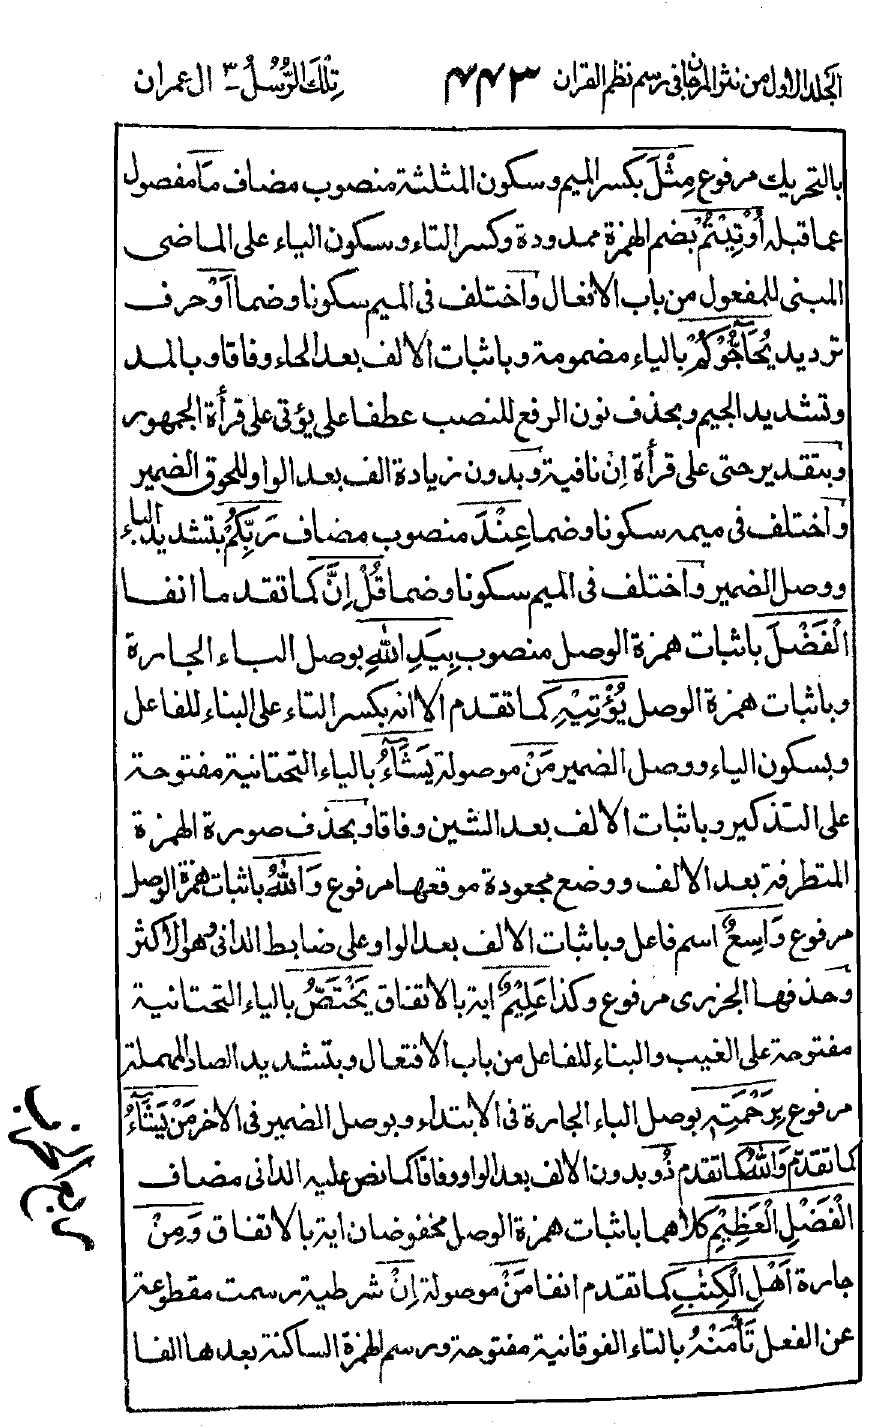 المجلد الاول من نثر المرجان فى رسم نظم القران ٤٤٣ تِلْكَ الرُّسُلُ ـ ٣ ال عمران
بالتحريك مرفوع مِثْلَ بكسر الميم وسكون المثلثة منصوب مضاف مَآ مفصول
عما قبله أُوْتِيْتُمْ بضم الهمزة ممدودة وكسر التاء وسكون الياء على الماضى
المبنى للمفعول من باب الافعال واختلف فى الميم سكونا وضما اَوْ حرف
ترديد يُحَآجُّوْكُمْ بالياء مضمومة وباثبات الالف بعد الحاء وفاقا وبالمد
وتشديد الجيم وبحذف نون الرفع للنصب عطفا على يؤتى على قرأة الجمهور
وبتقدير حتى على قرأة اِنْ نافية وبدون زيادة الف بعد الواو للحوق الضمير
واختلف فى ميمه سكونا وضما عِنْدَ منصوب مضاف رَبِّكُمْ بتشديد الباء
ووصل الضمير واختلف فى الميم سكونا وضما قُلْ اِنَّ كما تقدما انفا
الْفَضْلَ باثبات همزة الوصل منصوب بِيَدِ اللّٰهِ بوصل الباء الجارة
وباثبات همزة الوصل يُؤْتِيْهِ كما تقدم الا انه بكسر التاء على البناء للفاعل
وبسكون الياء ووصل الضمير مَنْ موصولة يَشَآءُ بالياء التحتانية مفتوحة
على التذكير وباثبات الالف بعد الشين وفاقا وبحذف صورة الهمزة
المتطرفة بعد الالف ووضع مجعودة موقعها مرفوع وَاللّٰهُ باثبات همزة الوصل
مرفوع وَاسِعٌ اسم فاعل وباثبات الالف بعد الواو على ضابط الدانى وهو الاكثر
وحذفها الجزرى مرفوع وكذا عَلِيْمٌ اية بالاتفاق يَخْتَصُّ بالياء التحتانية
مفتوحة على الغيب والبناء للفاعل من باب الافتعال وبتشديد الصاد المهملة
مرفوع بِرَحْمَتِهٖ بوصل الباء الجارة فى الابتداء وبوصل الضمير فى الاخر مَنْ يَشَآءُ
كما تقدم وَاللّٰهُ كما تقدم ذُو بدون الالف بعد الواو وفاقا كما نص عليه الدانى مضاف
الْفَضْلِ الْعَظِيْمِ كلاهما باثبات همزة الوصل مخفوضان اية بالاتفاق وَمِنْ
جارة اَهْلِ الْكِتٰبِ كما تقدم انفا مَنْ موصولة اِنْ شرطية رسمت مقطوعة
عن الفعل تَأْمَنْهُ بالتاء الفوقانية مفتوحة ورسم الهمزة الساكنة بعدها الفا